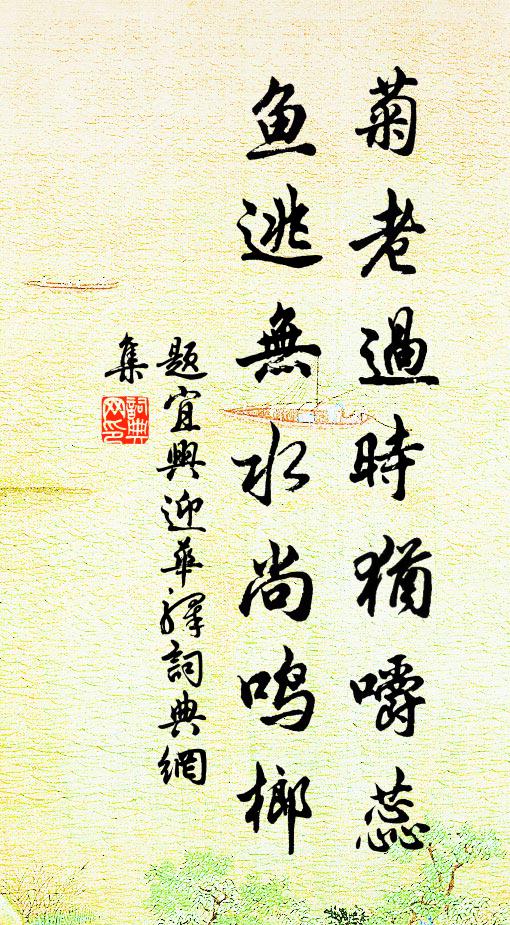 菊老過時猶嚼蕊
魚逃無水尚鳴榔
題宜興迎華驛詞典網
集
詞典网印